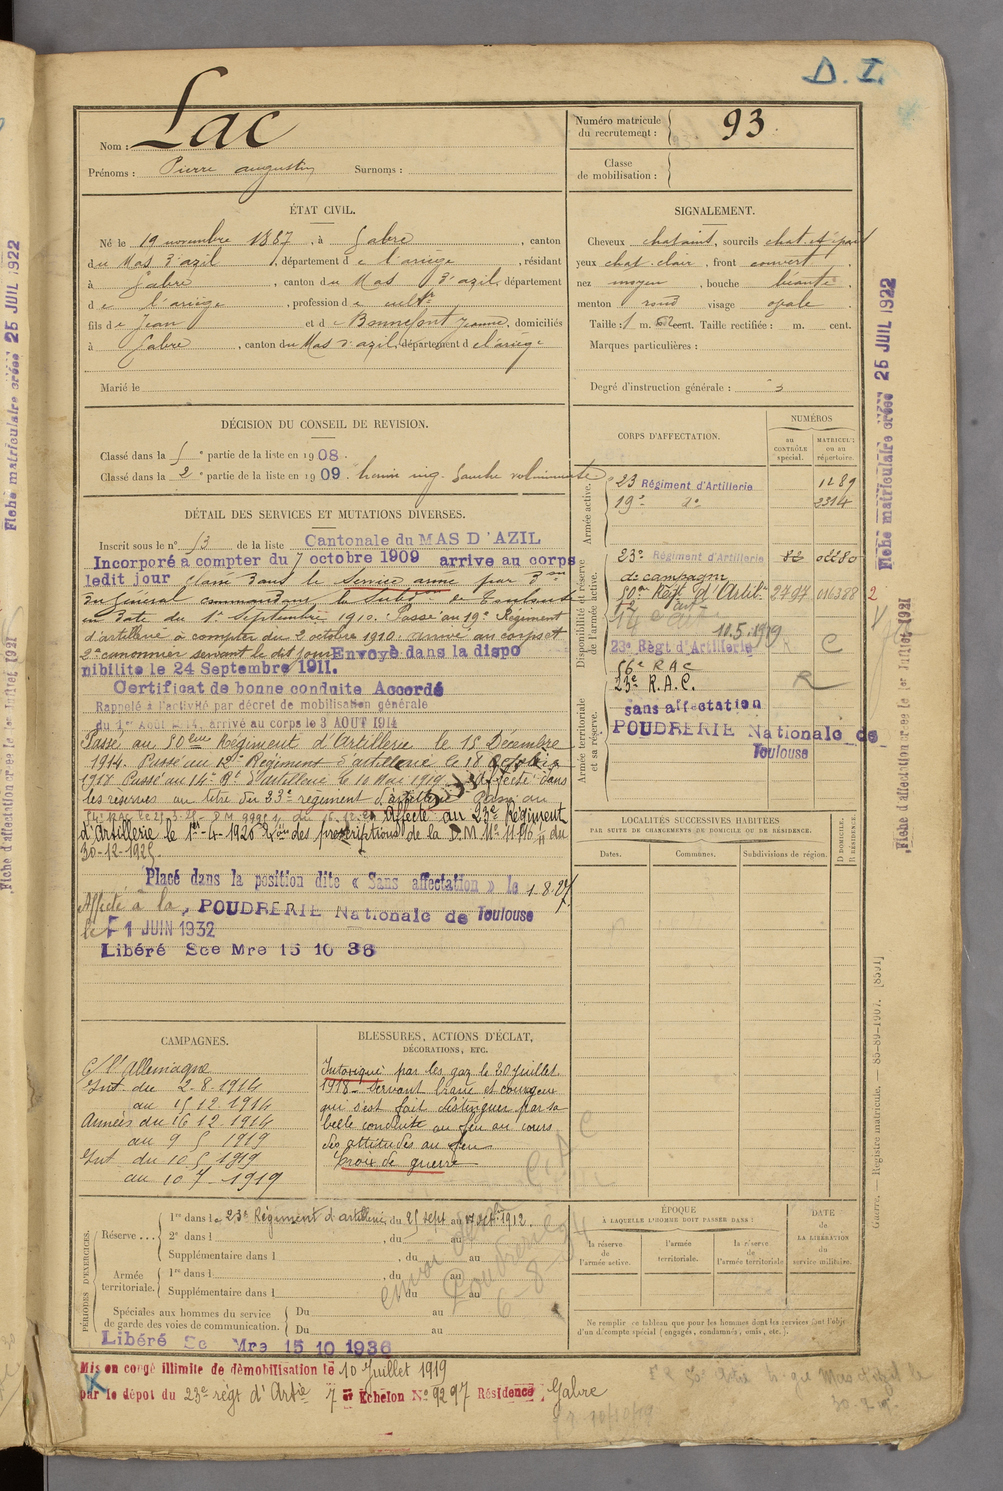 D. I.
Nom : Lac
Numéro matricule du recrutement : 93
Prénoms : Pierre augustin Surnoms :
Classe de mobilisation :
ÉTAT CIVIL.
Né le 19 novembre 1887, à Gabre, canton
du Mas d'azil, département de l'ariège, résidant
à Gabre, canton du Mas d'azil, département
de l'ariège, profession de cultr
fils de Jean et de Bonnefont Jeanne, domiciliés
à Gabre, canton du Mas d'azil, département de l'ariège
Marié le
SIGNALEMENT.
Cheveux chatains, sourcils chat. et épais
yeux chat. clair, front couvert
nez moyen, bouche béante
menton rond visage ovale
Taille : 1 m. cent. Taille rectifiée : m. cent.
Marques particulières :
Degré d'instruction générale : 3
DÉCISION DU CONSEIL DE REVISION.
Classé dans la 5e partie de la liste en 1908.
Classé dans la 2e partie de la liste en 1909. hernie ing. gauche volumineuse
DÉTAIL DES SERVICES ET MUTATIONS DIVERSES.
Inscrit sous le n° 53 de la liste Cantonale du MAS D'AZIL
Incorporé à compter du 7 octobre 1909 arrivé au corps
ledit jour classé dans le service armé par
Général commandant la Subon de Toulouse
en date du 1er Septembre 1910. Passé au 19e Régiment
d'artillerie à compter du 2 octobre 1910. arrivé au corps et
2e canonnier servant le dit jour Envoyé dans la dispo
nibilité le 24 Septembre 1911.
Certificat de bonne conduite Accordé
Rappelé à l'activité par décret de mobilisation générale
du 1er Août 1914, arrivé au corps le 3 AOUT 1914
Passé au 50ème Régiment d'Artillerie le 15 Décembre
1914. Passé au 12e Régiment d'artillerie le 18 octobre
1917 Passé au 14e Rt d'artillerie le 10 Mai 1919. Affecté dans
les réserves au titre du 23e régiment d'artillerie Passé au
Affecté au 23e Régiment
d'Artillerie le 1er-4-1926 des prescriptions de la D.M. N° du
30-12-1925.
Placé dans la position dite « Sans affectation » le 1-8-27
Affecté à la POUDRERIE Nationale de Toulouse
le 1 JUIN 1932
Libéré Sce Mre 15 10 36
CORPS D'AFFECTATION.
NUMÉROS
au CONTRÔLE spécial.
MATRICULE ou au répertoire.
Armée active.
23 Régiment d'Artillerie 1289
19e do 2314
Disponibilité et réserve de l'armée active.
23e Régiment d'Artillerie 82 02280
de campagne
50e Regt d'Artie 2797 016388
10.5.1919
23e Règt d'Artillerie R C
Armée territoriale et sa réserve.
56e RAC
23e R.A.C. R
sans affectation
POUDRERIE Nationale de
Toulouse
LOCALITÉS SUCCESSIVES HABITÉES
PAR SUITE DE CHANGEMENTS DE DOMICILE OU DE RÉSIDENCE.
Dates. Communes. Subdivisions de région. D DOMICILE. R RÉSIDENCE.
CAMPAGNES.
C/ l'Allemagne
Int du 2.8.1914
au 15.12.1914
Armées du 16.12.1914
au 9 5 1919
Int du 10 5 1919
au 10 7 1919
BLESSURES, ACTIONS D'ÉCLAT,
DÉCORATIONS, ETC.
Intoxiqué par les gaz le 20 juillet
1918 - Servant brave et courageux
qui s'est fait distinguer par sa
belle conduite au feu au cours
des attitudes au feu
Croix de guerre
PÉRIODES D'EXERCICES.
Réserve ... 1re dans le 23e Régiment d'artillerie, du 25 sept. au 1912.
2e dans l , du au
Supplémentaire dans l , du au
Armée territoriale. 1re dans l , du au
Supplémentaire dans l du au
Spéciales aux hommes du service de garde des voies de communication. Du au
Du au
Libéré Sce Mre 15 10 1936
ÉPOQUE
À LAQUELLE L'HOMME DOIT PASSER DANS :
la réserve de l'armée active.
l'armée territoriale.
la réserve de l'armée territoriale
DATE de LA LIBÉRATION du service militaire.
Ne remplir ce tableau que pour les hommes dont les services font l'objet
d'un décompte spécial (engagés, condamnés, omis, etc.).
Mis en congé illimité de démobilisation le 10 Juillet 1919
par le dépôt du 23e régt d'Artie 7e Echelon No 9297 Résidence Gabre
Fiche matriculaire créée 25 JUIL 1922
Fiche d'affectation créée le 1er Juillet 1921
Guerre. — Registre matricule. — 85-89-1907. [8391]
Fiche matriculaire créée 25 JUIL 1922
Fiche d'affectation créée le 1er Juillet 1921